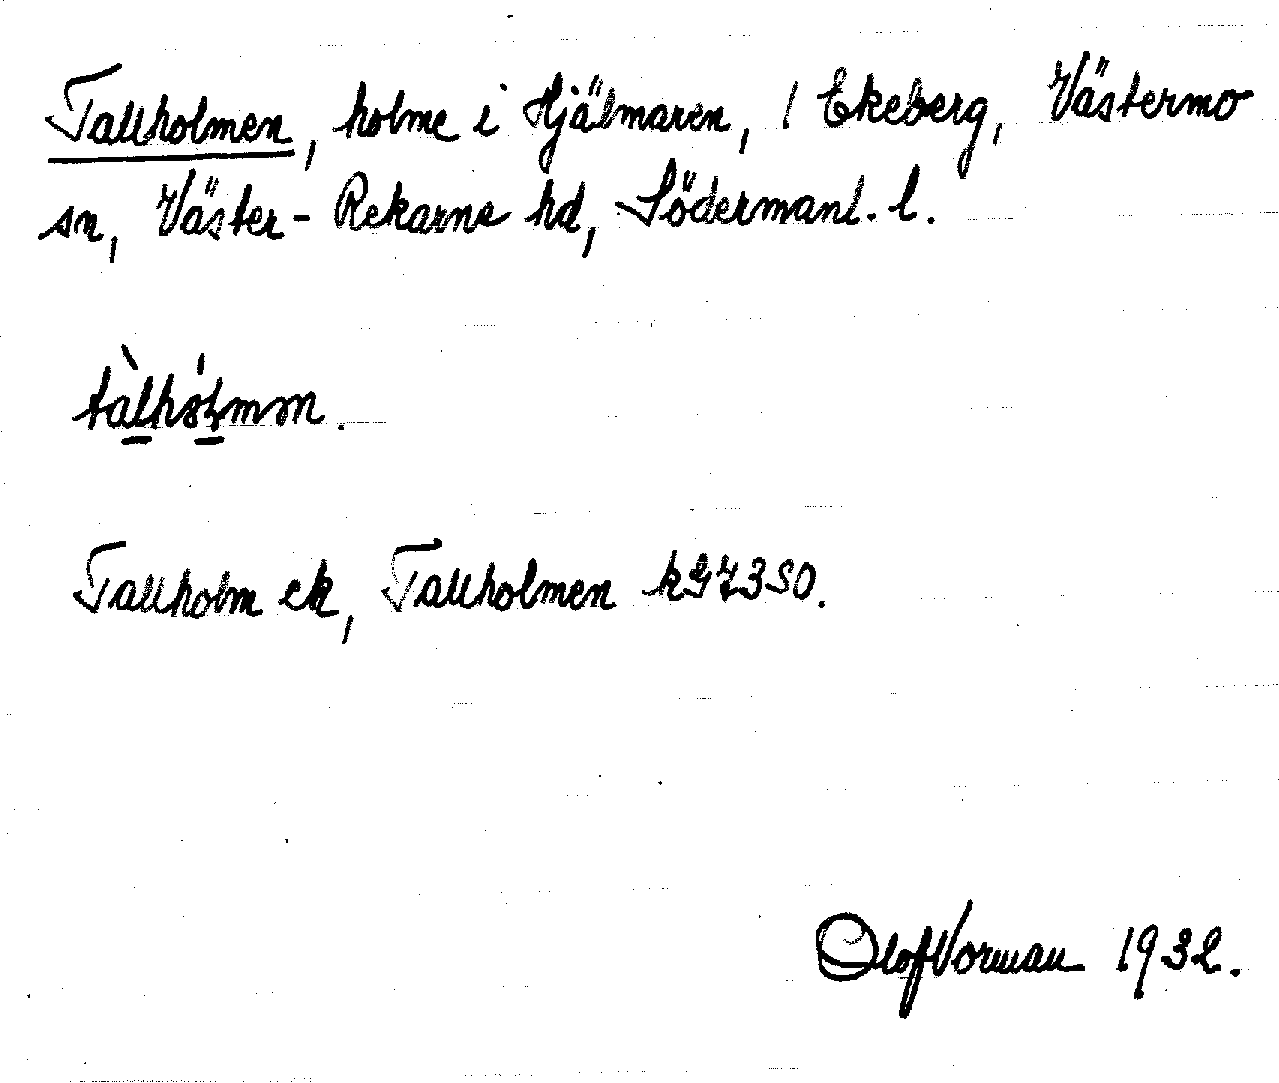 Tallholmen, holme i Hjälmaren, / Ekeberg, Västermo
sn, Väster-Rekarne hd, Södermanl. l.
Tallholm ek, Tallholmen
Olof Vorman 1932.